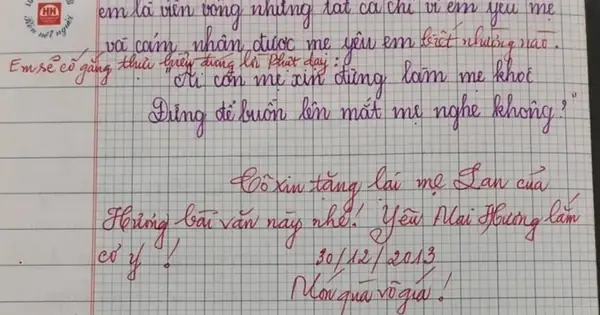 em là viển vông nhưng tất cả chỉ vì em yêu mẹ
và cảm nhận được mẹ yêu em biết nhường nào.
Em sẽ cố gắng thực hiện đúng lời Phật dạy:
"Ai còn mẹ xin đừng làm mẹ khóc
Đừng để buồn lên mắt mẹ nghe không?"
Cô xin tặng lại mẹ Lan của
Hương bài văn này nhé! Yêu Mai Hương lắm
cơ ý!
30/12/2013
Món quà vô giá!
HH